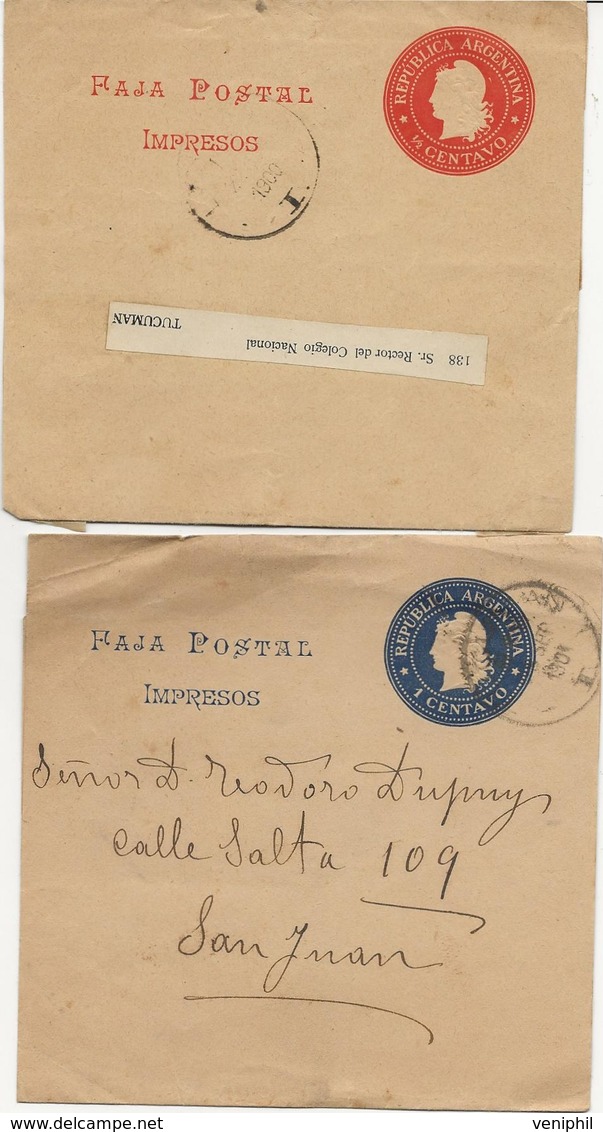 FAJA POSTAL
IMPRESOS
REPUBLICA ARGENTINA
½ CENTAVO
1900
T
138 Sr. Rector del Colegio Nacional
TUCUMAN
FAJA POSTAL
IMPRESOS
REPUBLICA ARGENTINA
1 CENTAVO
1901
T
Señor D. Teodoro Dupuy
Calle Salta 109
San Juan
veniphil